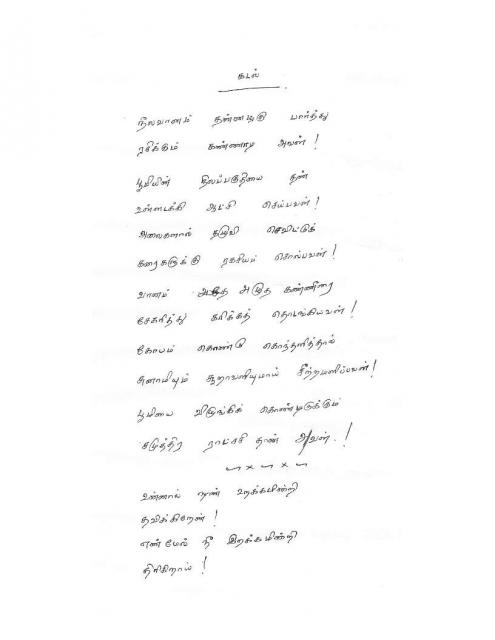 கடல்
நீலவானம் தன்னழகு பார்த்து
ரசிக்கும் கண்ணாடி அவள் !
பூமியின் நிலப்பகுதியை தன்
உள்ளடக்கி ஆட்சி செய்பவள் !
அலைகளால் தழுவி செவிட்டுக்
கரைகளுக்கு ரகசியம் சொல்பவள் !
வானம் அழுத கண்ணீரை
சேகரித்து கரிக்கத் தொடங்கியவள் !
கோபம் கொண்டு கொந்தளித்தால்
சுனாமியும் சூறாவளியுமாய் சீற்றமளிப்பவள் !
பூமியை விழுங்கிக் கொண்டிருக்கும்
சமுத்திர ராட்சசி தான் அவள் . !
உன்னால் நான் உறக்கமின்றி
தவிக்கிறேன் !
என் மேல் நீ இரக்கமின்றி
திரிகிறாய் !